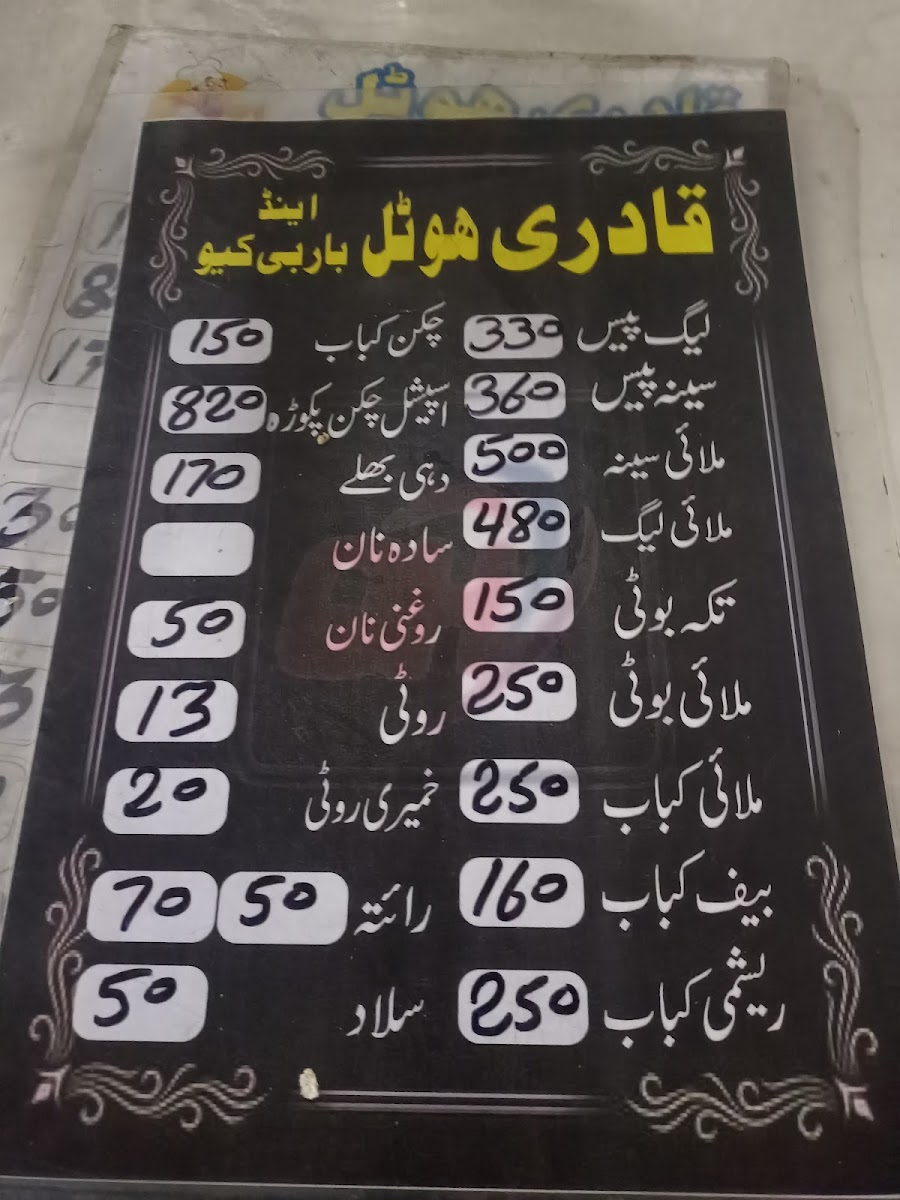 قادری ھوٹل اینڈ باربی کیو
لیگ پیس 330 چکن کباب 150
سینہ پیس 360 اسپیشل چکن پکوڑہ 820
ملائی سینہ 500 دہی بھلے 170
ملائی لیگ 480 سادہ نان
تکہ بوٹی 150 روغنی نان 50
ملائی بوٹی 250 روٹی 13
ملائی کباب 250 خمیری روٹی 20
بیف کباب 160 رائتہ 50 70
ریشمی کباب 250 سلاد 50